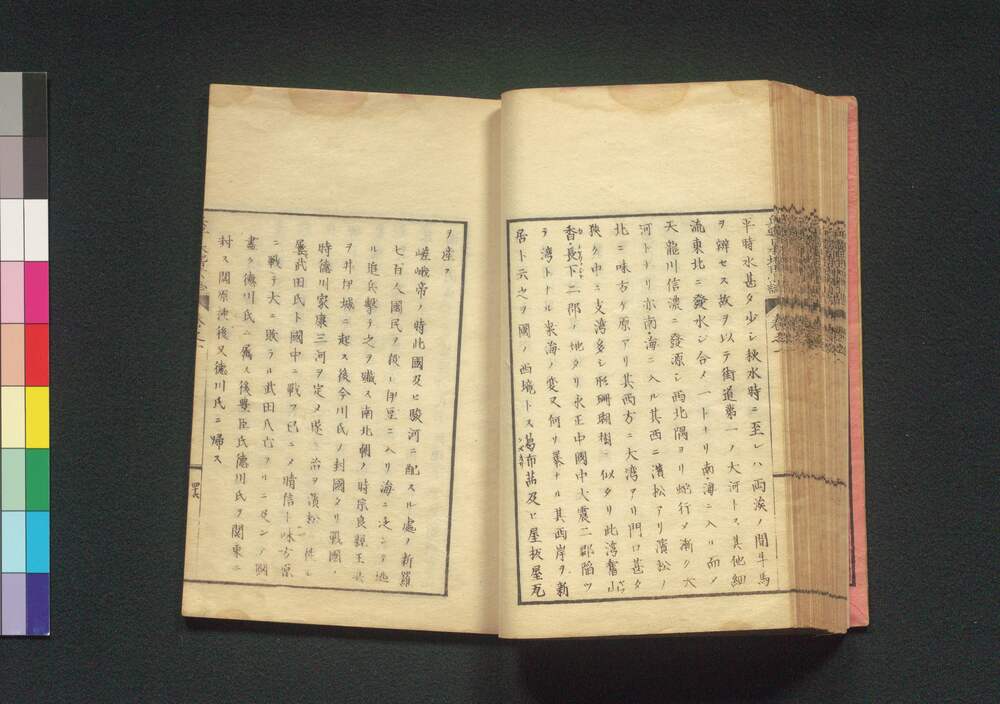 平時水甚タ少シ秋水時ニ至レハ両涘ノ間牛馬
ヲ辨セス故ヲ以テ街道第一ノ大河トス其他細
流東北ニ發シ水ヲ合メ一トナリ南海ニ入ル而ノ
天龍川信濃ニ發源シ西北隅ヨリ蛇行メ漸ク大
河トナリ亦南海ニ入ル其西ニ濱松アリ濱松ノ
北ニ味方ケ原アリ其西方ニ大湾アリ門口甚タ
狹ク中ニ支湾多シ形珊瑚樹ニ似タリ此湾舊山
香長下二郡ノ地タリ永正中國中大震二郡陷ツ
テ湾トナル桒海ノ変又何ソ暴ナル其西岸ヲ新
居ト云之ヲ國ノ西境トス葛布茁及ヒ屋板屋瓦
ヲ産ス
嵯峨帝ノ時此國及ヒ駿河ニ配スル處ノ新羅
七百人國民ヲ殺シ伊豆ニ入リ海ニ泛ンテ逃
ル追兵擊テ之ヲ殲ス南北朝ノ時宗良親王兵
ヲ井伊城ニ起ス後今川氏ノ封國タリ戰國ノ
時徳川家康三河ヲ定メ遂ニ治ヲ濱松ニ徙シ
屡武田氏ト國中ニ戰フ已ニメ晴信ト味方原
ニ戰テ大ニ敗ラル武田氏亡フルニ及ンテ闔
畫ク徳川氏ニ屬ス後豊臣氏徳川氏ヲ関東ニ
封ス関原役後又徳川氏ニ歸ス